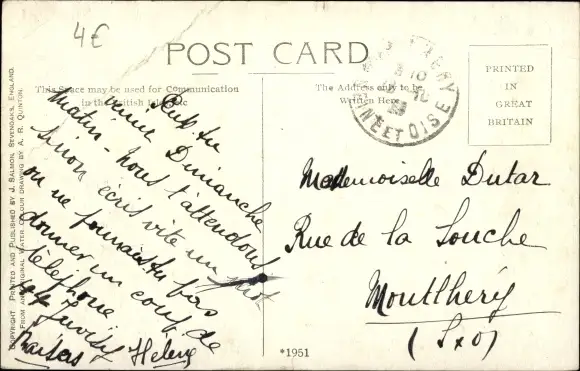 4€
POST CARD
This Space may be used for Communication
in the British Isles etc
The Address only to be
Written Here
PRINTED
IN
GREAT
BRITAIN
SEINE ET OISE
Peux tu
venir Dimanche
matin - nous t'attendons
sinon écris vite un mot
ou ne pourrais tu pas
donner un coup de
téléphone
Juvisy
Baisers Hélène
Mademoiselle Dutar
Rue de la Souche
Montlhéry
(S x O)
*1951
COPYRIGHT PRINTED AND PUBLISHED BY J. SALMON, SEVENOAKS, ENGLAND.
FROM AN ORIGINAL WATER COLOUR DRAWING BY A. R. QUINTON.